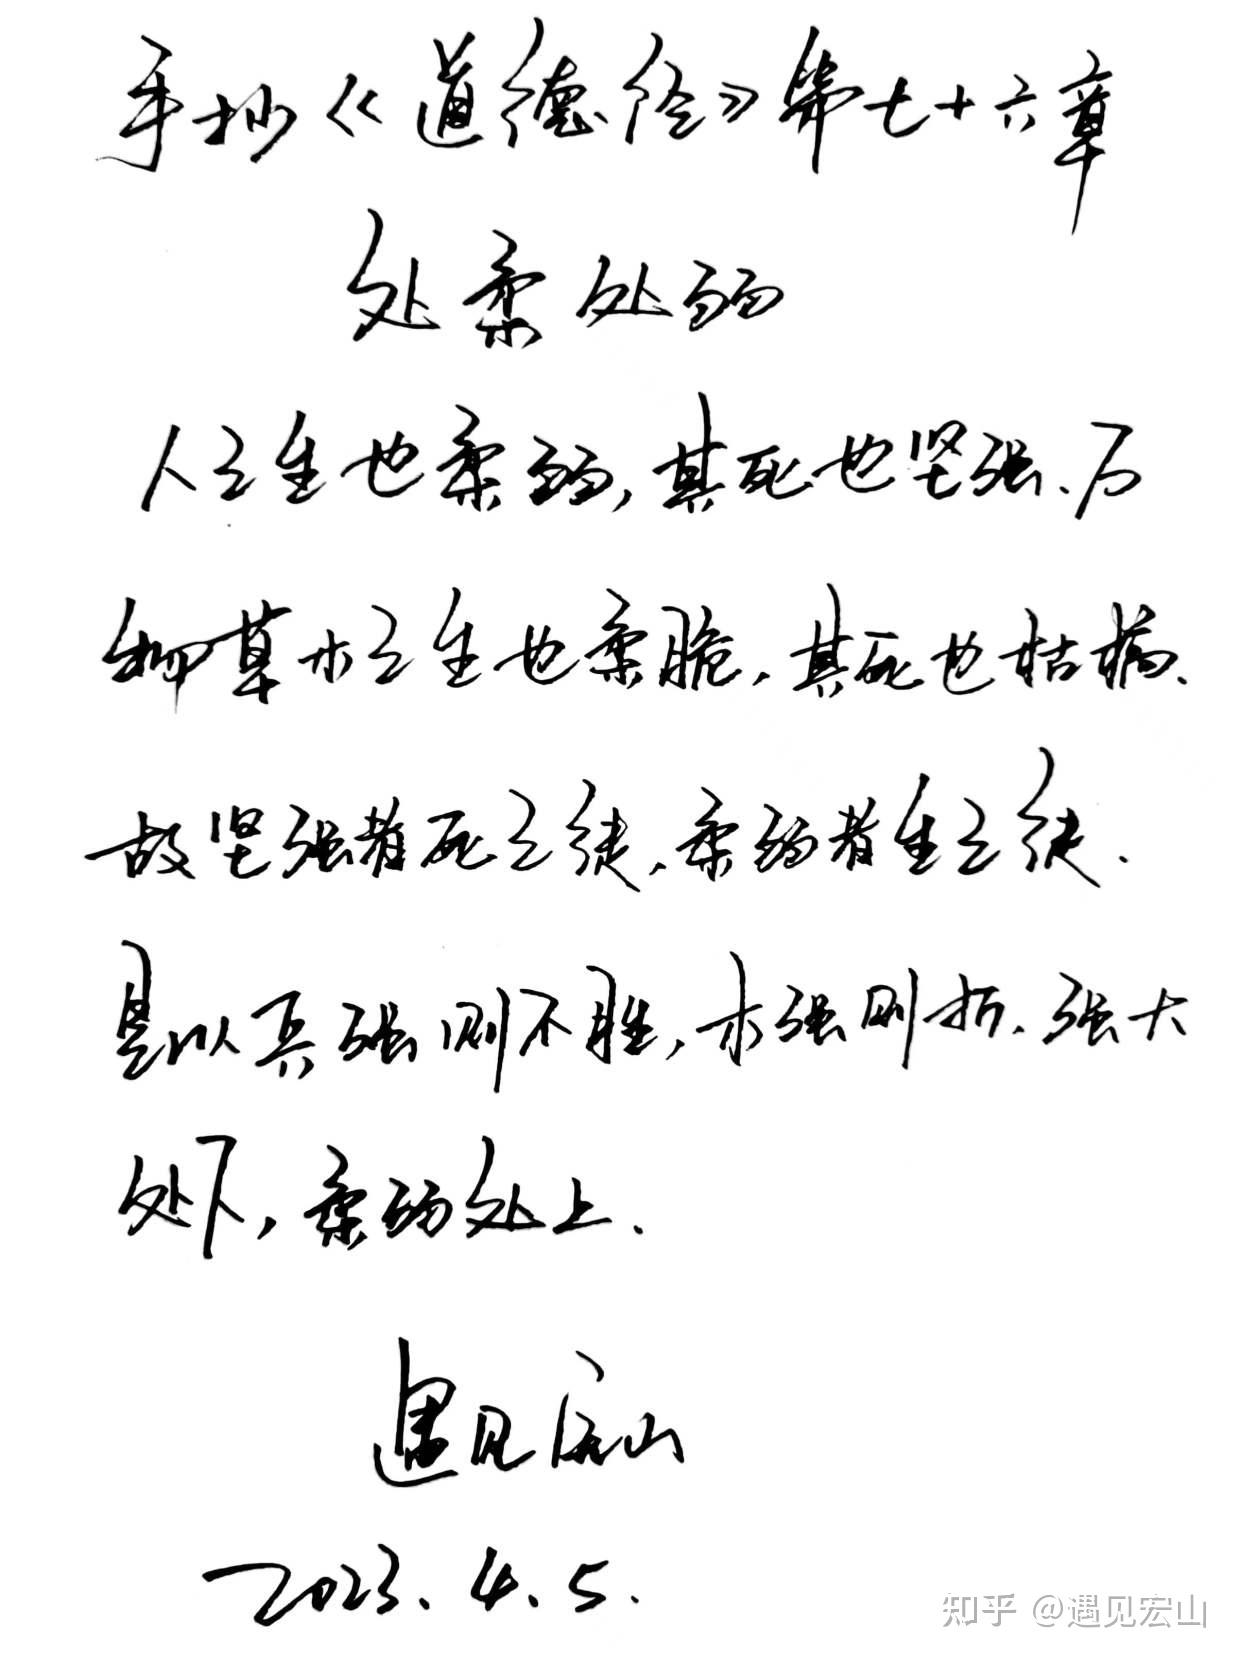 手抄《道德经》第七十六章
处柔处弱
人之生也柔弱,其死也坚强.万
物草木之生也柔脆,其死也枯槁.
故坚强者死之徒,柔弱者生之徒.
是以兵强则不胜,木强则折.强大
处下,柔弱处上.
遇见宏山
2023.4.5.
知乎 @遇见宏山